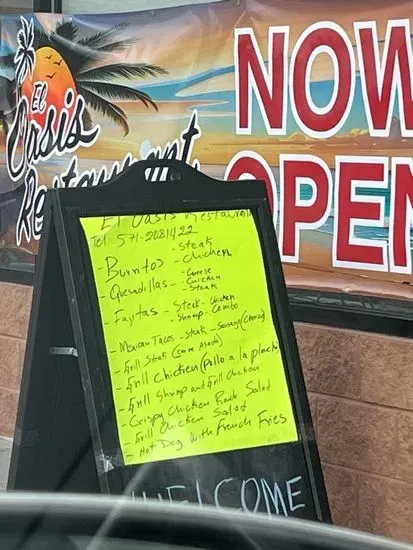 El Oasis Restaurant
NOW
OPEN
El Oasis Restaurant
Tel 571-2081422
- Burritos - steak
- chicken
- Quesadillas - cheese
- chicken
- steak
- Fajitas - Steak - chicken
- Shrimp - Combo
- Mexican Tacos - steak - Sausage (Chorizo)
- Grill Steak (carne Asada)
- Grill Chicken (pollo a la plancha)
- Grill Shrimp and Grill Chicken
- Crispy Chicken Salad
- Grill Chicken Salad
- Hot-Dog with French Fries
WELCOME